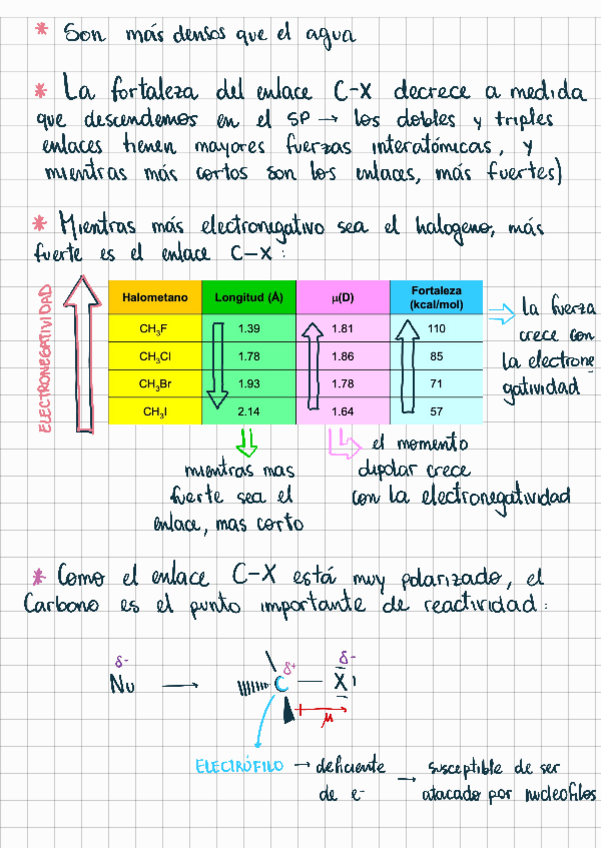 * Son más densos que el agua
* La fortaleza del enlace C-X decrece a medida
que descendemos en el SP → los dobles y triples
enlaces tienen mayores fuerzas interatómicas, y
mientras más cortos son los enlaces, más fuertes)
* Mientras más electronegativo sea el halogeno, más
fuerte es el enlace C-X:
ELECTRONEGATIVIDAD
Halometano Longitud (Å) μ(D) Fortaleza (kcal/mol)
CH₃F 1.39 1.81 110
CH₃Cl 1.78 1.86 85
CH₃Br 1.93 1.78 71
CH₃I 2.14 1.64 57
la fuerza
crece con
la electrone
gatividad
mientras mas
fuerte sea el
enlace, mas corto
el momento
dipolar crece
con la electronegatividad
* Como el enlace C-X está muy polarizado, el
Carbono es el punto importante de reactividad:
δ- δ+ δ-
Nu → C — X
μ
ELECTRÓFILO → deficiente
de e-
→ susceptible de ser
atacado por nucleofilos